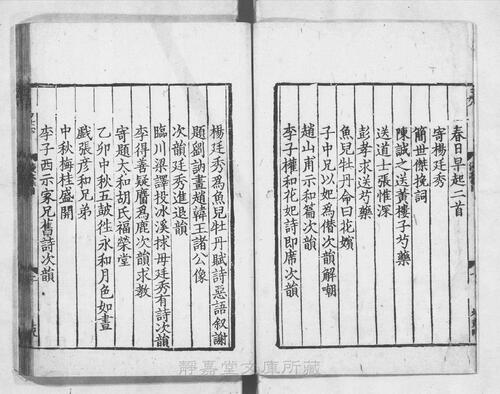 春日早起二首
寄楊廷秀
簡世傑挽詞
陳誠之送黃樓子芍藥
送道士張惟深
彭孝求送芍藥
魚兒牡丹余曰花嬪
子中兄以妃爲僭次韻解嘲
趙山甫示和篇次韻
李子權和花妃詩即席次韻
楊廷秀爲魚兒牡丹賦詩惡語叙謝
題劉訥畫趙韓王諸公像
次韻廷秀進退韻
臨川梁譯投氷溪捄母廷秀有詩次韻
李得善疑贋爲鹿次韻求教
寄題太和胡氏福榮堂
乙卯中秋五皷往永和月色如晝
戲張彥和兄弟
中秋梅桂盛開
李子西示家兄舊詩次韻
靜嘉堂文庫所藏